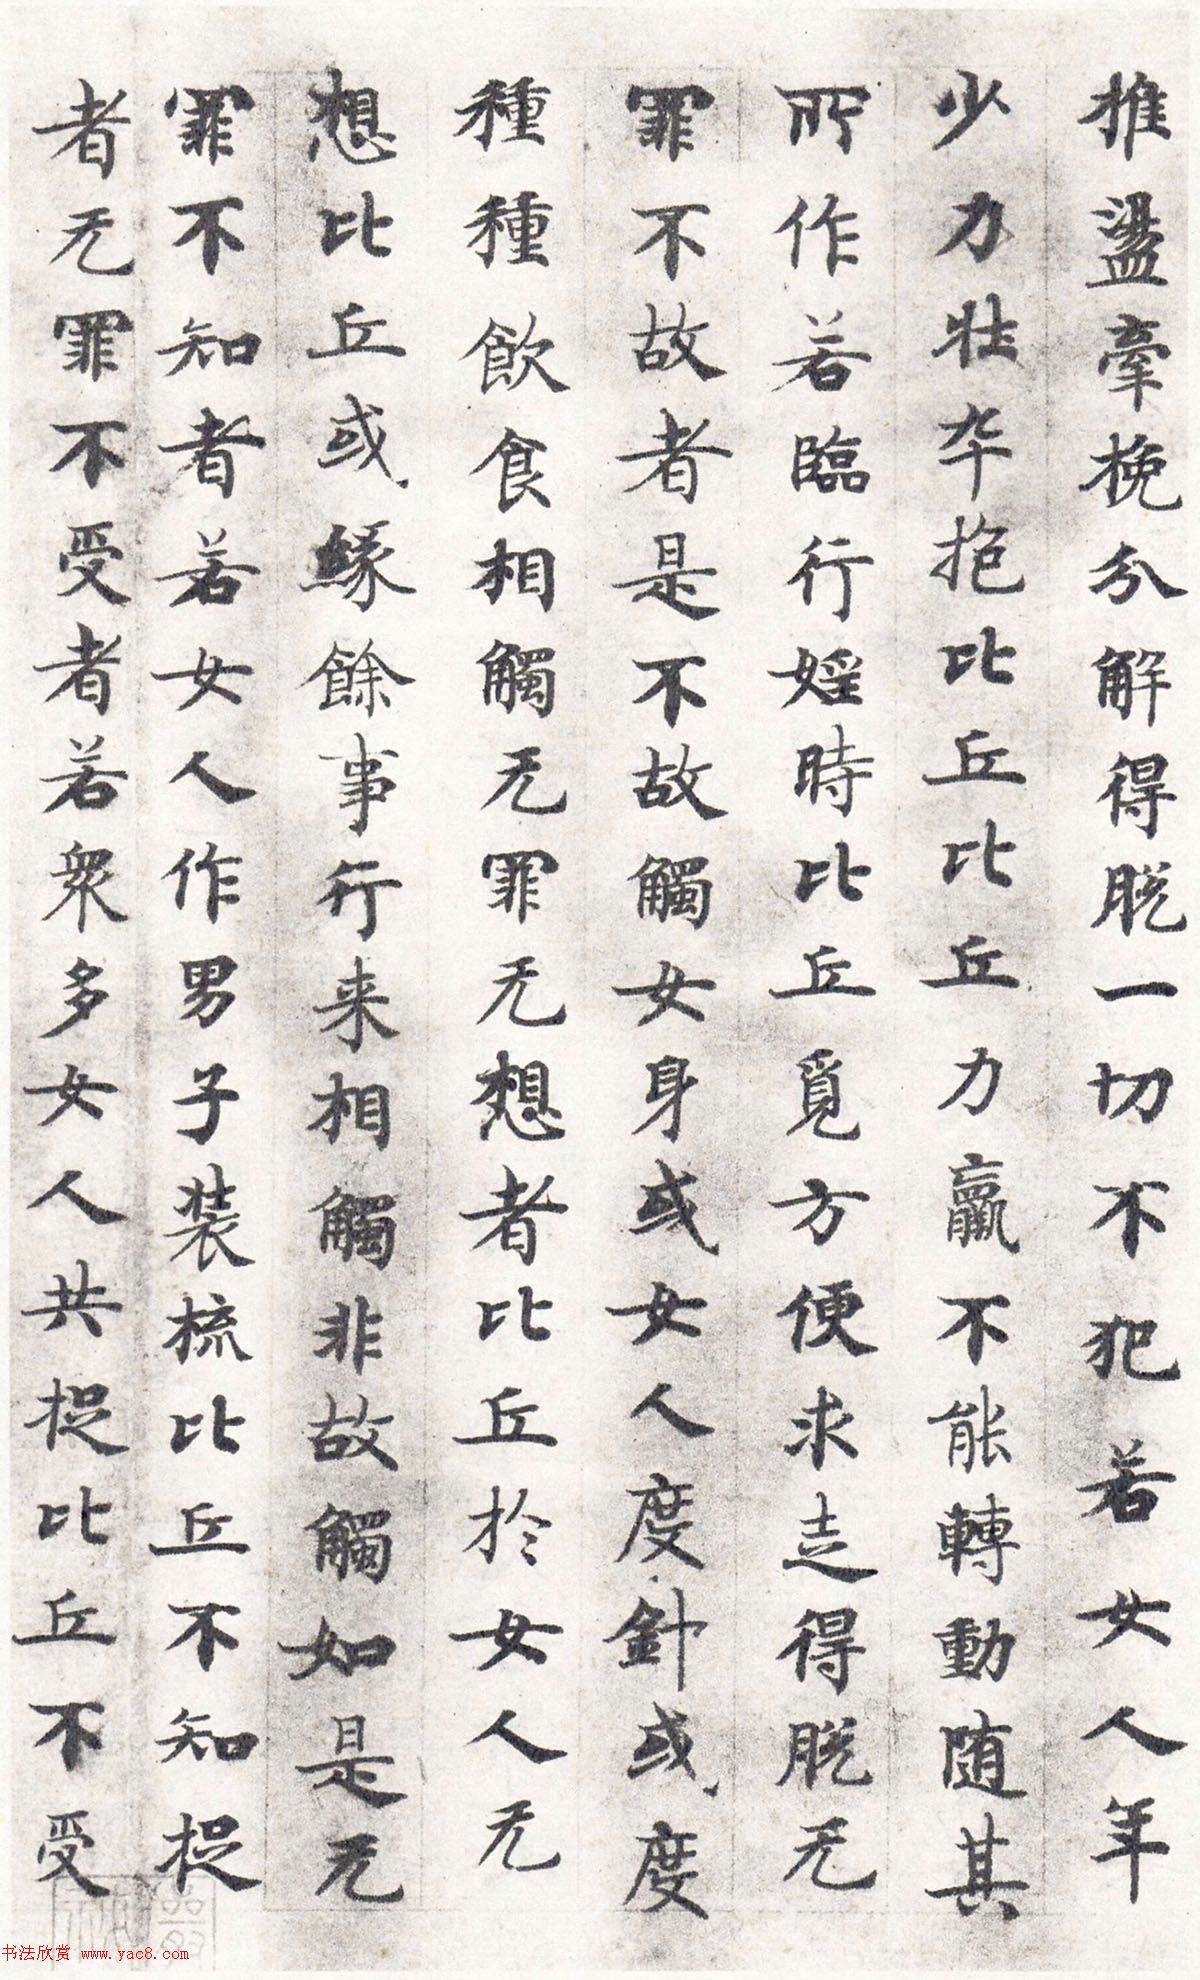 推盪牽挽分解得脱一切不犯若女人年
少力壯卒抱比丘比丘力羸不能轉動随其
所作若臨行婬時比丘覓方便求走得脱无
罪不故者是不故觸女身或女人度針或度
種種飲食相觸无罪无想者比丘於女人无
想比丘或緣餘事行来相觸非故觸如是无
罪不知者若女人作男子装梳比丘不知捉
者无罪不受者若衆多女人共捉比丘不受
书法欣赏 www.yac8.com